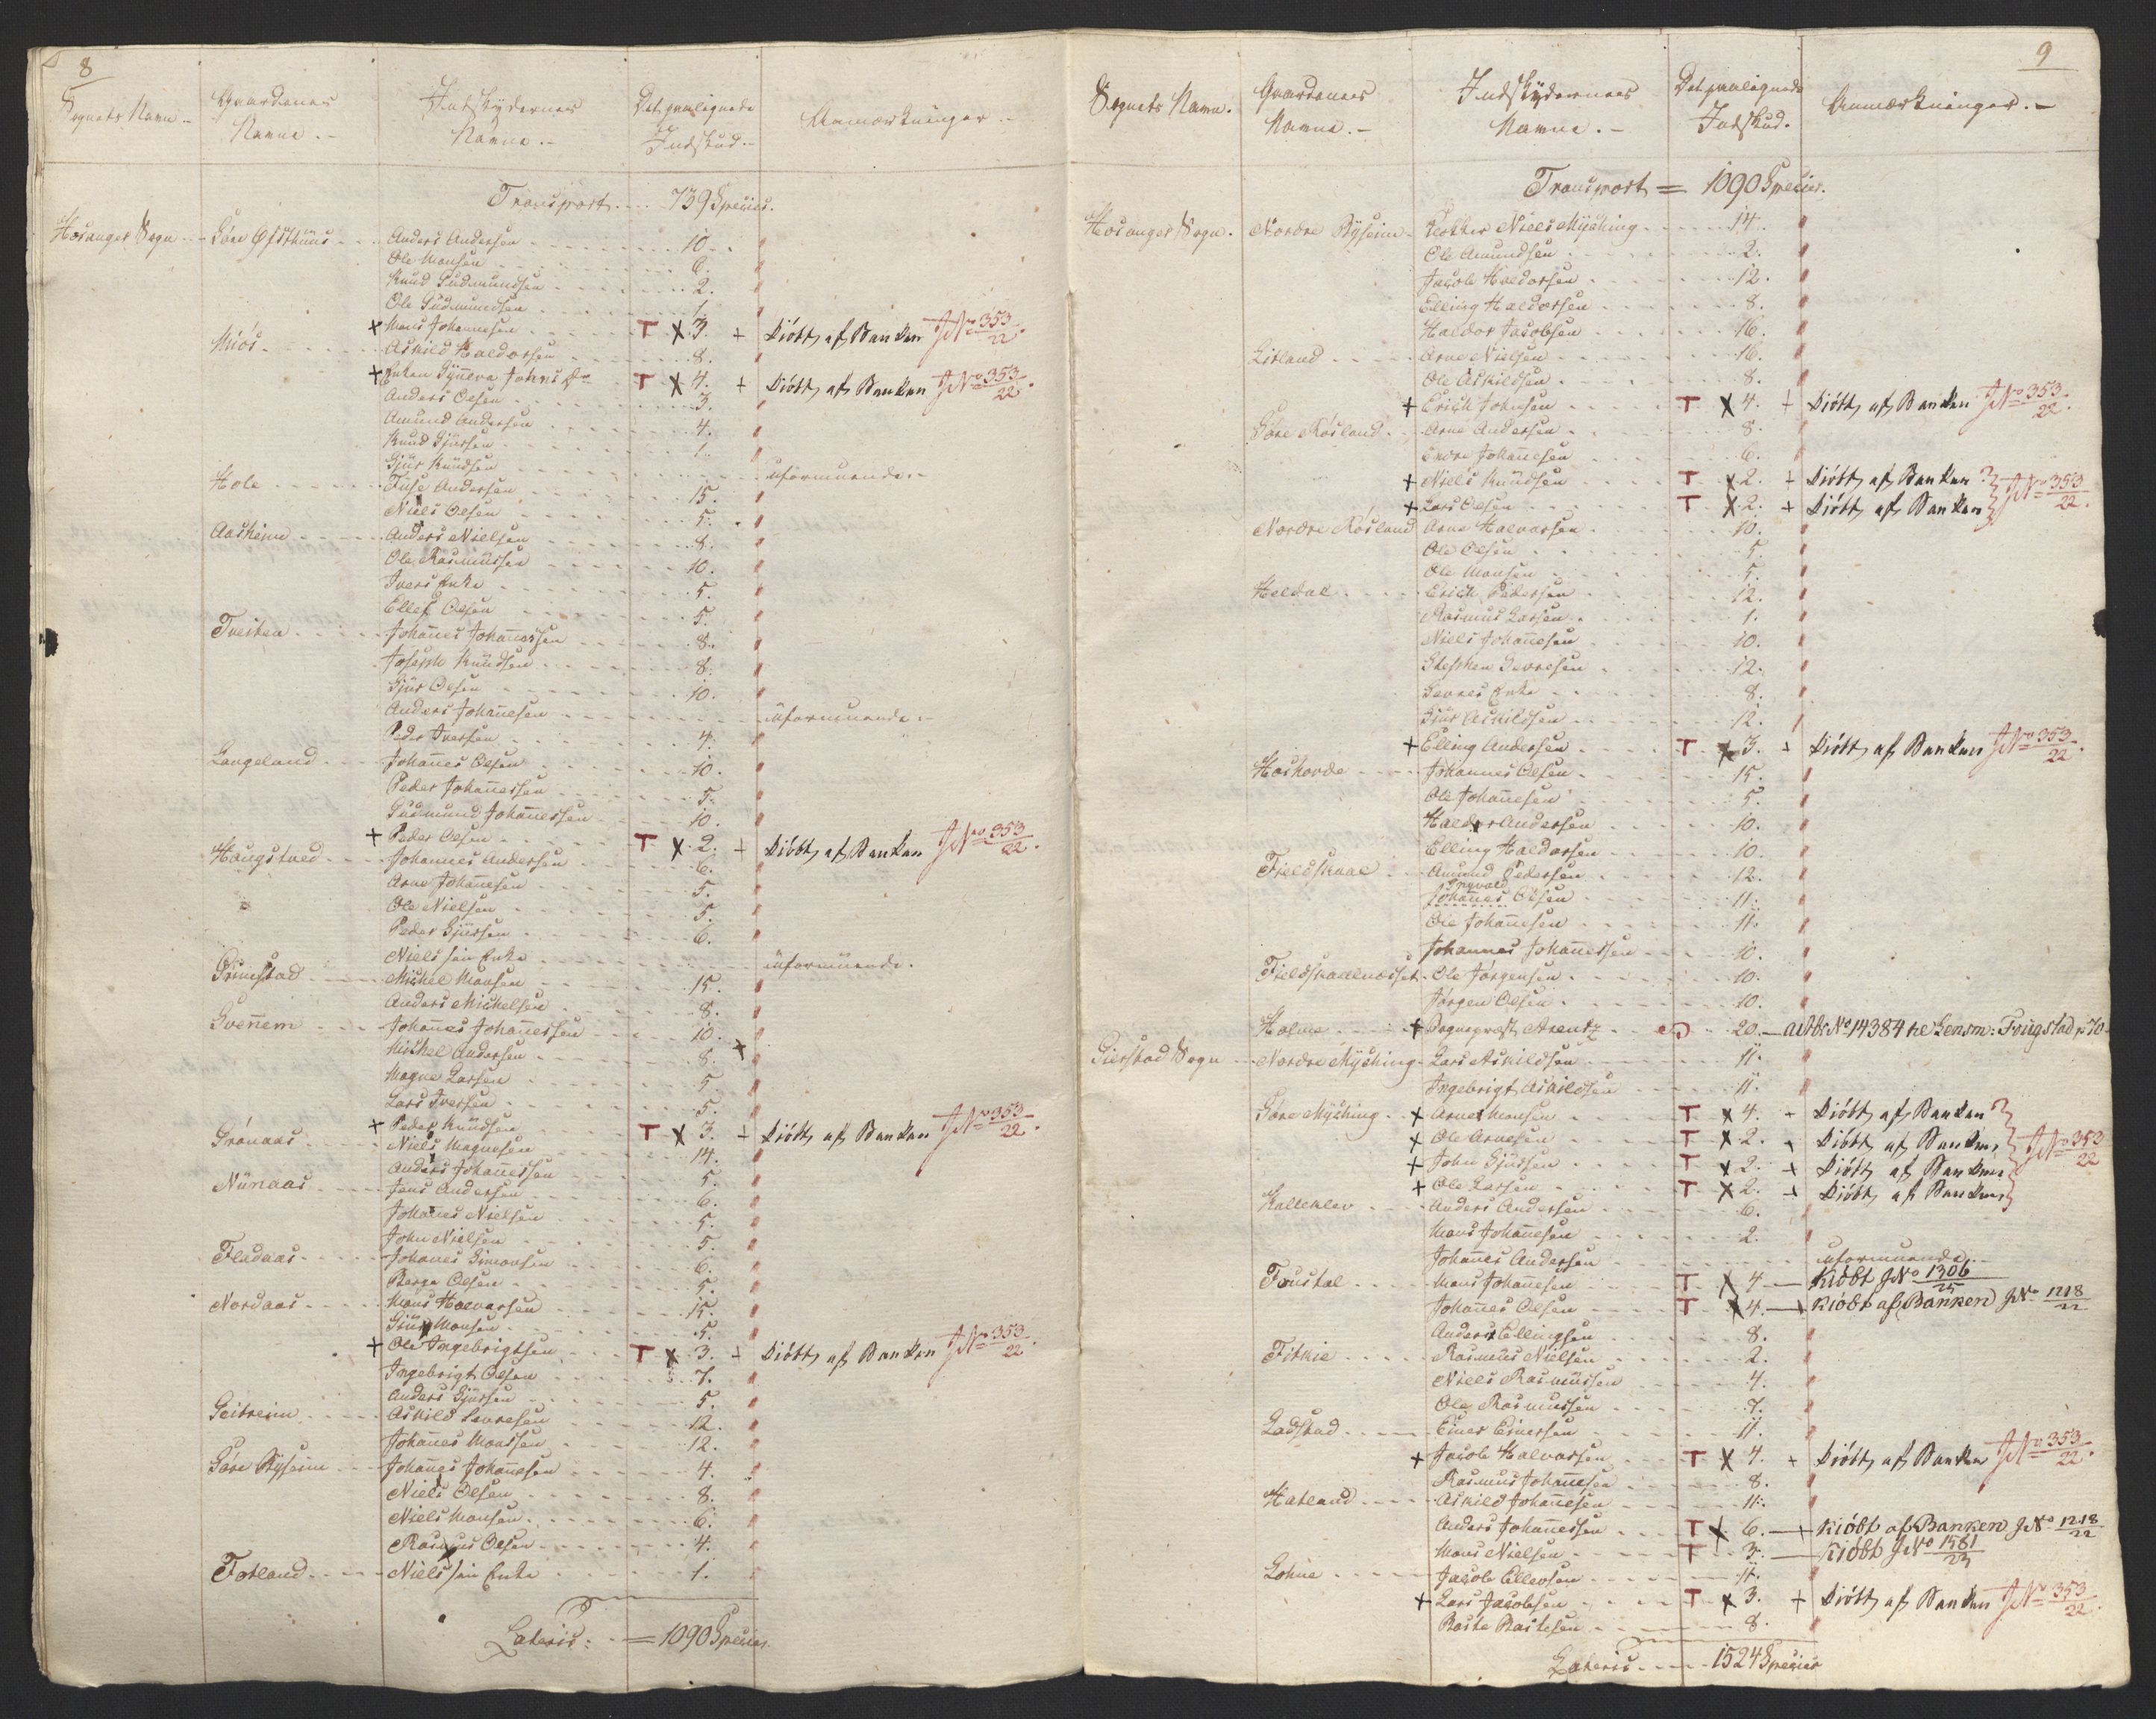 8
Sognets Navn.- Gaardenes Navne.- Indskydernes Navne.- Det paalignede Indskud.- Anmærkninger.-
Transport.... 739 Species.
Hosanger Sogn. Søre Øfsthuus Anders Andersen 10.
Ole Monsen 6.
Knud Gudmundsen 2.
Ole Gudmundsen 1.
+ Mons Johannesen T X 3. + Kiöbt af Banken J No 353/22.
Miøs Askild Haldorsen 8.
+ Enken Synneva Johns Dr T X 4. + Kiöbt af Banken J No 353/22.
Anders Olsen 3.
Amund Andersen 4.
Knud Sjursen 1.
Sjur Knudsen uformuende.-
Hole Fuse Andersen 15.
Niels Olsen 5.
Aasheim Anders Nielsen 8.
Ole Rasmussen 10.
Ivers Enke 5.
Ellef Olsen 5.
Tveiten Johannes Johannessen 8.
Joseph Knudsen 8.
Sjur Olsen 10.
Anders Johannesen uformuende.-
Peder Iversen 4.
Langeland Johannes Olsen 10.
Peder Johannessen 5.
Gudmund Johannessen 10.
+ Peder Olsen T X 2. + Kiöbt af Banken J No 353/22.
Hougstved Johannes Andersen 6.
Arne Johannesen 5.
Ole Nielsen 5.
Peder Sjursen 6.
Niels sin Enke uformuende.
Grimstad Michel Monsen 15.
Anders Michelsen 8.
Svennem Johannes Johannessen 10.
Michel Andersen 8. +
Magne Larsen 5.
Lars Iversen 5.
+ Peder Knudsen T X 3. + Kiöbt af Banken J No 353/22.
Grønaas Niels Magnesen 14.
Anders Johannessen 5.
Nunaas Jens Andersen 6.
Johannes Nielsen 5.
John Nielsen 5.
Fladaas Johannes Simonsen 6.
Børge Olsen 5.
Nordaas Mons Halvorsen 15.
Sjur Monsen 5.
+ Ole Ingebrigtsen T X 3. + Kiöbt af Banken J No 353/22.
Ingebrigt Olsen 7.
Anders Sjursen 5.
Geitreim Askild Sevresen 12.
Johannes Monssen 12.
Søre Rysseim Johannes Johannesen 4.
Niels Olsen 8.
Niels Monsen 6.
Rasmus Olsen 4.
Fotland Niels sin Enke 1.
Lateris: = 1090 Species.
9
Sognets Navn. Gaardenes Navne.- Indskydernes Navne.- Det paalignede Indskud. Anmærkninger.-
Transport = 1090 Species.
Hosanger Sogn. Nordre Rysseim Klokker Niels Mysching 14.
Ole Amundsen 2.
Jacob Haldorsen 12.
Elling Haldorsen 8.
Haldor Jacobsen 16.
Litland Arne Nielsen 16.
Ole Askildsen 8.
+ Erich Johnsen T X 4. + Kiöbt af Banken J No 353/22.
Søre Røsland Arne Andersen 8.
Endre Johannesen 6.
+ Niels Knudsen T X 2. + Kiöbt af Banken
+ Lars Olsen T X 2. + Kiöbt af Banken J No 353/22.
Nordre Røsland Arne Halvorsen 10.
Ole Olsen 5.
Ole Monsen 5.
Heldal Erich Pedersen 12.
Rasmus Larsen 1.
Niels Johannesen 10.
Stephen Sevresen 12.
Sevres Enke 8.
Sjur Askildsen 12.
+ Elling Andersen T X 3. + Kiöbt af Banken J No 353/22.
Hoshovde Johannes Olsen 15.
Ole Johannesen 5.
Haldor Andersen 10.
Elling Haldorsen 10.
Fieldskaal Amund Pedersen 12.
Ingvald
Johannes Olsen 11.
Ole Johannesen 11.
Johannes Johannessen 10.
Fieldskaalnæsset Ole Jørgensen 10.
Jørgen Olsen 10.
Holme + Sognepræst Arentz 20. — act Br No 14384 fre Lensm: Fougstad p 70
Gierstad Sogn Nordre Mysching Lars Askildsen 11.
Ingebrigt Askildsen 11.
Søre Mysching + Arne Monsen T X 4. + Kiöbt af Banken
+ Ole Arnesen T X 2. + Kiöbt af Banken
+ John Sjursen T X 2. + Kiöbt af Banken J No 353/22
+ Ole Larsen T X 2. + Kiöbt af Banken
Kalleklev Anders Andersen 6.
Mons Johannesen 2.
Johannes Andersen uformuende.-
Toustal Mons Johannesen T X 4. — Kiöbt J No 1306/25
Johannes Olsen T X 4. — Kiöbt af Banken J No 1218/22
Anders Ellingsen 8.
Fitkie Rasmus Nielsen 2.
Niels Rasmussen 4.
Ole Rasmussen 7.
Ladstad Einer Einersen 11.
+ Jacob Halvorsen T X 4. + Kiöbt af Banken J No 353/22.
Rasmus Johannesen 8.
Hatland Askild Johannesen 11.
Anders Johannessen T X 6. — Kiöbt af Banken J No 1218/22
Mons Nielsen T 3. — Kiöbt J No 1581/23
Lohne Jacob Ellevsen 11.
+ Lars Jacobsen T X 3. + Kiöbt af Banken J No 353/22.
Baste Bastesen 8.
Lateris 1524 Species